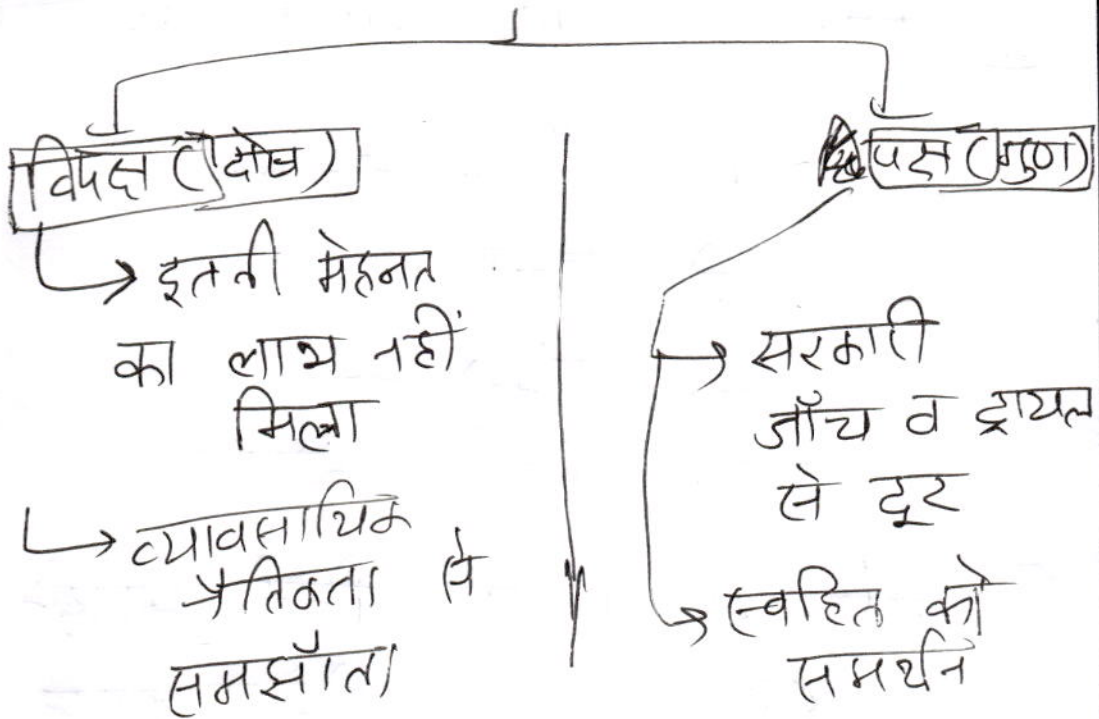 विपक्ष (दोष)
→ इतनी मेहनत
का लाभ नहीं
मिला
→ व्यावसायिक
नैतिकता से
समझौता
पक्ष (गुण)
→ सरकारी
जाँच व ट्रायल
से दूर
→ स्वहित को
समर्थन